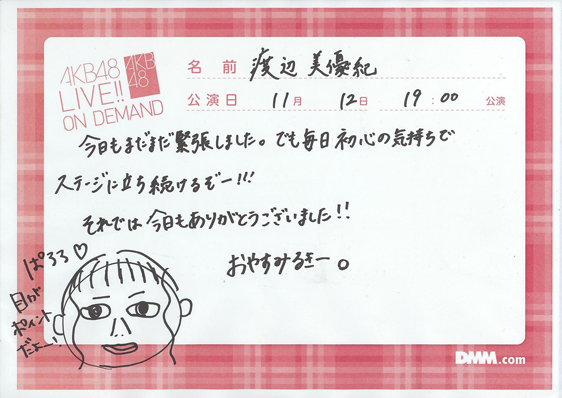 AKB48
LIVE!!
ON DEMAND
AKB
48
名前 渡辺 美優紀
公演日 11月 12日 19:00 公演
今日もまだまだ緊張しました。でも毎日初心の気持ちで
ステージに立ち続けるぞー!!!
それでは今日もありがとうございました!!
おやすみるきー。
ぱるる♡
目が
ポイント
だよー!
DMM.com